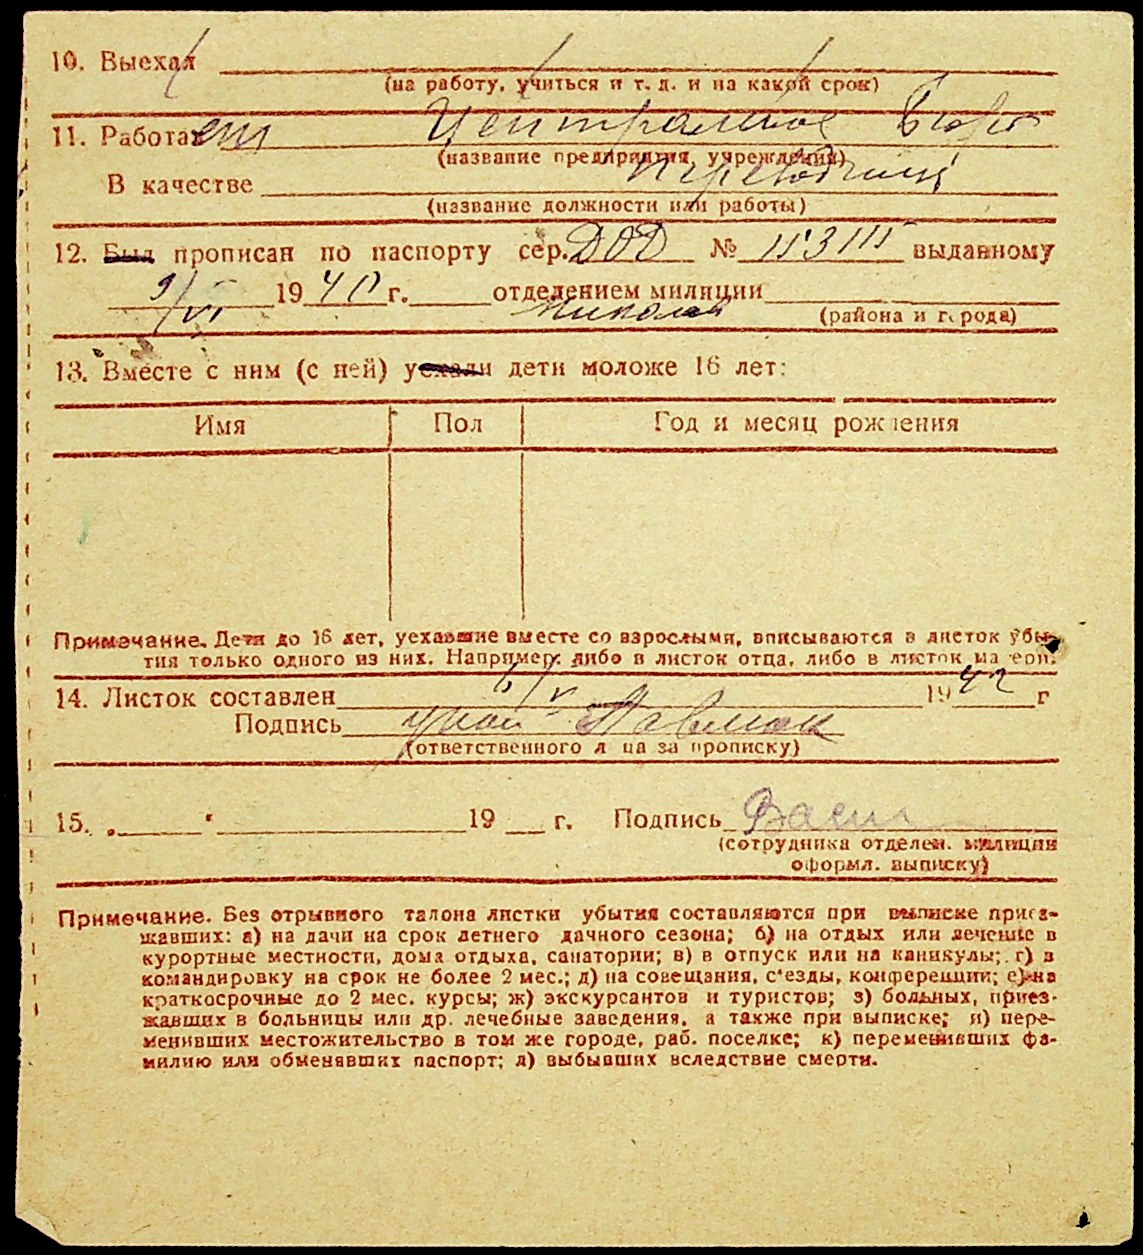 10. Выехал
(на работу, учиться и т. д. и на какой срок)
11. Работает Центральное Бюро
(название предприятия, учреждения)
В качестве переводчица
(название должности или работы)
12. Был прописан по паспорту сер. ДОД № выданному
9/VI 1940 г. отделением милиции
(района и города)
13. Вместе с ним (с ней) уехали дети моложе 16 лет:
Имя Пол Год и месяц рождения
Примечание. Дети до 16 лет, уехавшие вместе со взрослыми, вписываются в листок убы-
тия только одного из них. Например: либо в листок отца, либо в листок матери.
14. Листок составлен 6/V 1942 г
Подпись Павлюк
(ответственного лица за прописку)
15. „ “ 19 г. Подпись
(сотрудника отделен. милиции
оформл. выписку)
Примечание. Без отрывного талона листки убытия составляются при выписке приез-
жавших: а) на дачи на срок летнего дачного сезона; б) на отдых или лечение в
курортные местности, дома отдыха, санатории; в) в отпуск или на каникулы; г) в
командировку на срок не более 2 мес.; д) на совещания, с'езды, конференции; е) на
краткосрочные до 2 мес. курсы; ж) экскурсантов и туристов; з) больных, приез-
жавших в больницы или др. лечебные заведения, а также при выписке; и) пере-
менивших местожительство в том же городе, раб. поселке; к) переменивших фа-
милию или обменявших паспорт; л) выбывших вследствие смерти.